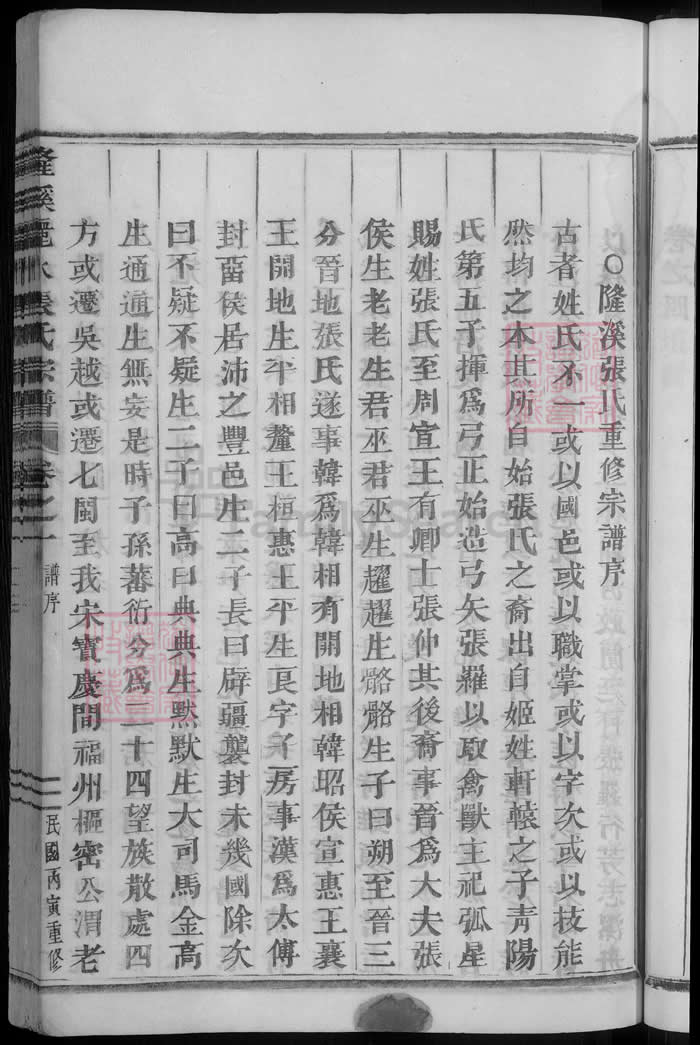 ○隆溪張氏重修宗譜序
古者姓氏不一或以國邑或以職掌或以字次或以技能
然均之本其所自始張氏之裔出自姬姓軒轅之子青陽
氏第五子揮爲弓正始造弓矢張羅以取禽獸主祀弧星
賜姓張氏至周宣王有卿士張仲其後裔事晉爲大夫張
侯生老老生君巫君巫生趯趯生骼骼生子曰朔至晉三
分晉地張氏遂事韓爲韓相有開地相韓昭侯宣惠王襄
王開地生平相釐王桓惠王平生良字子房事漢爲太傅
封畱侯居沛之豐邑生二子長曰辟疆襲封未幾國除次
曰不疑不疑生二子曰高曰典典生默默生大司馬金高
生通通生無妄是時子孫蕃衍分爲二十四望族散處四
方或遷吳越或遷七閩至我宋寶慶間福州樞密公渭老
隆溪 張氏宗譜
卷之一
譜序
民國丙寅重修
FamilySearch